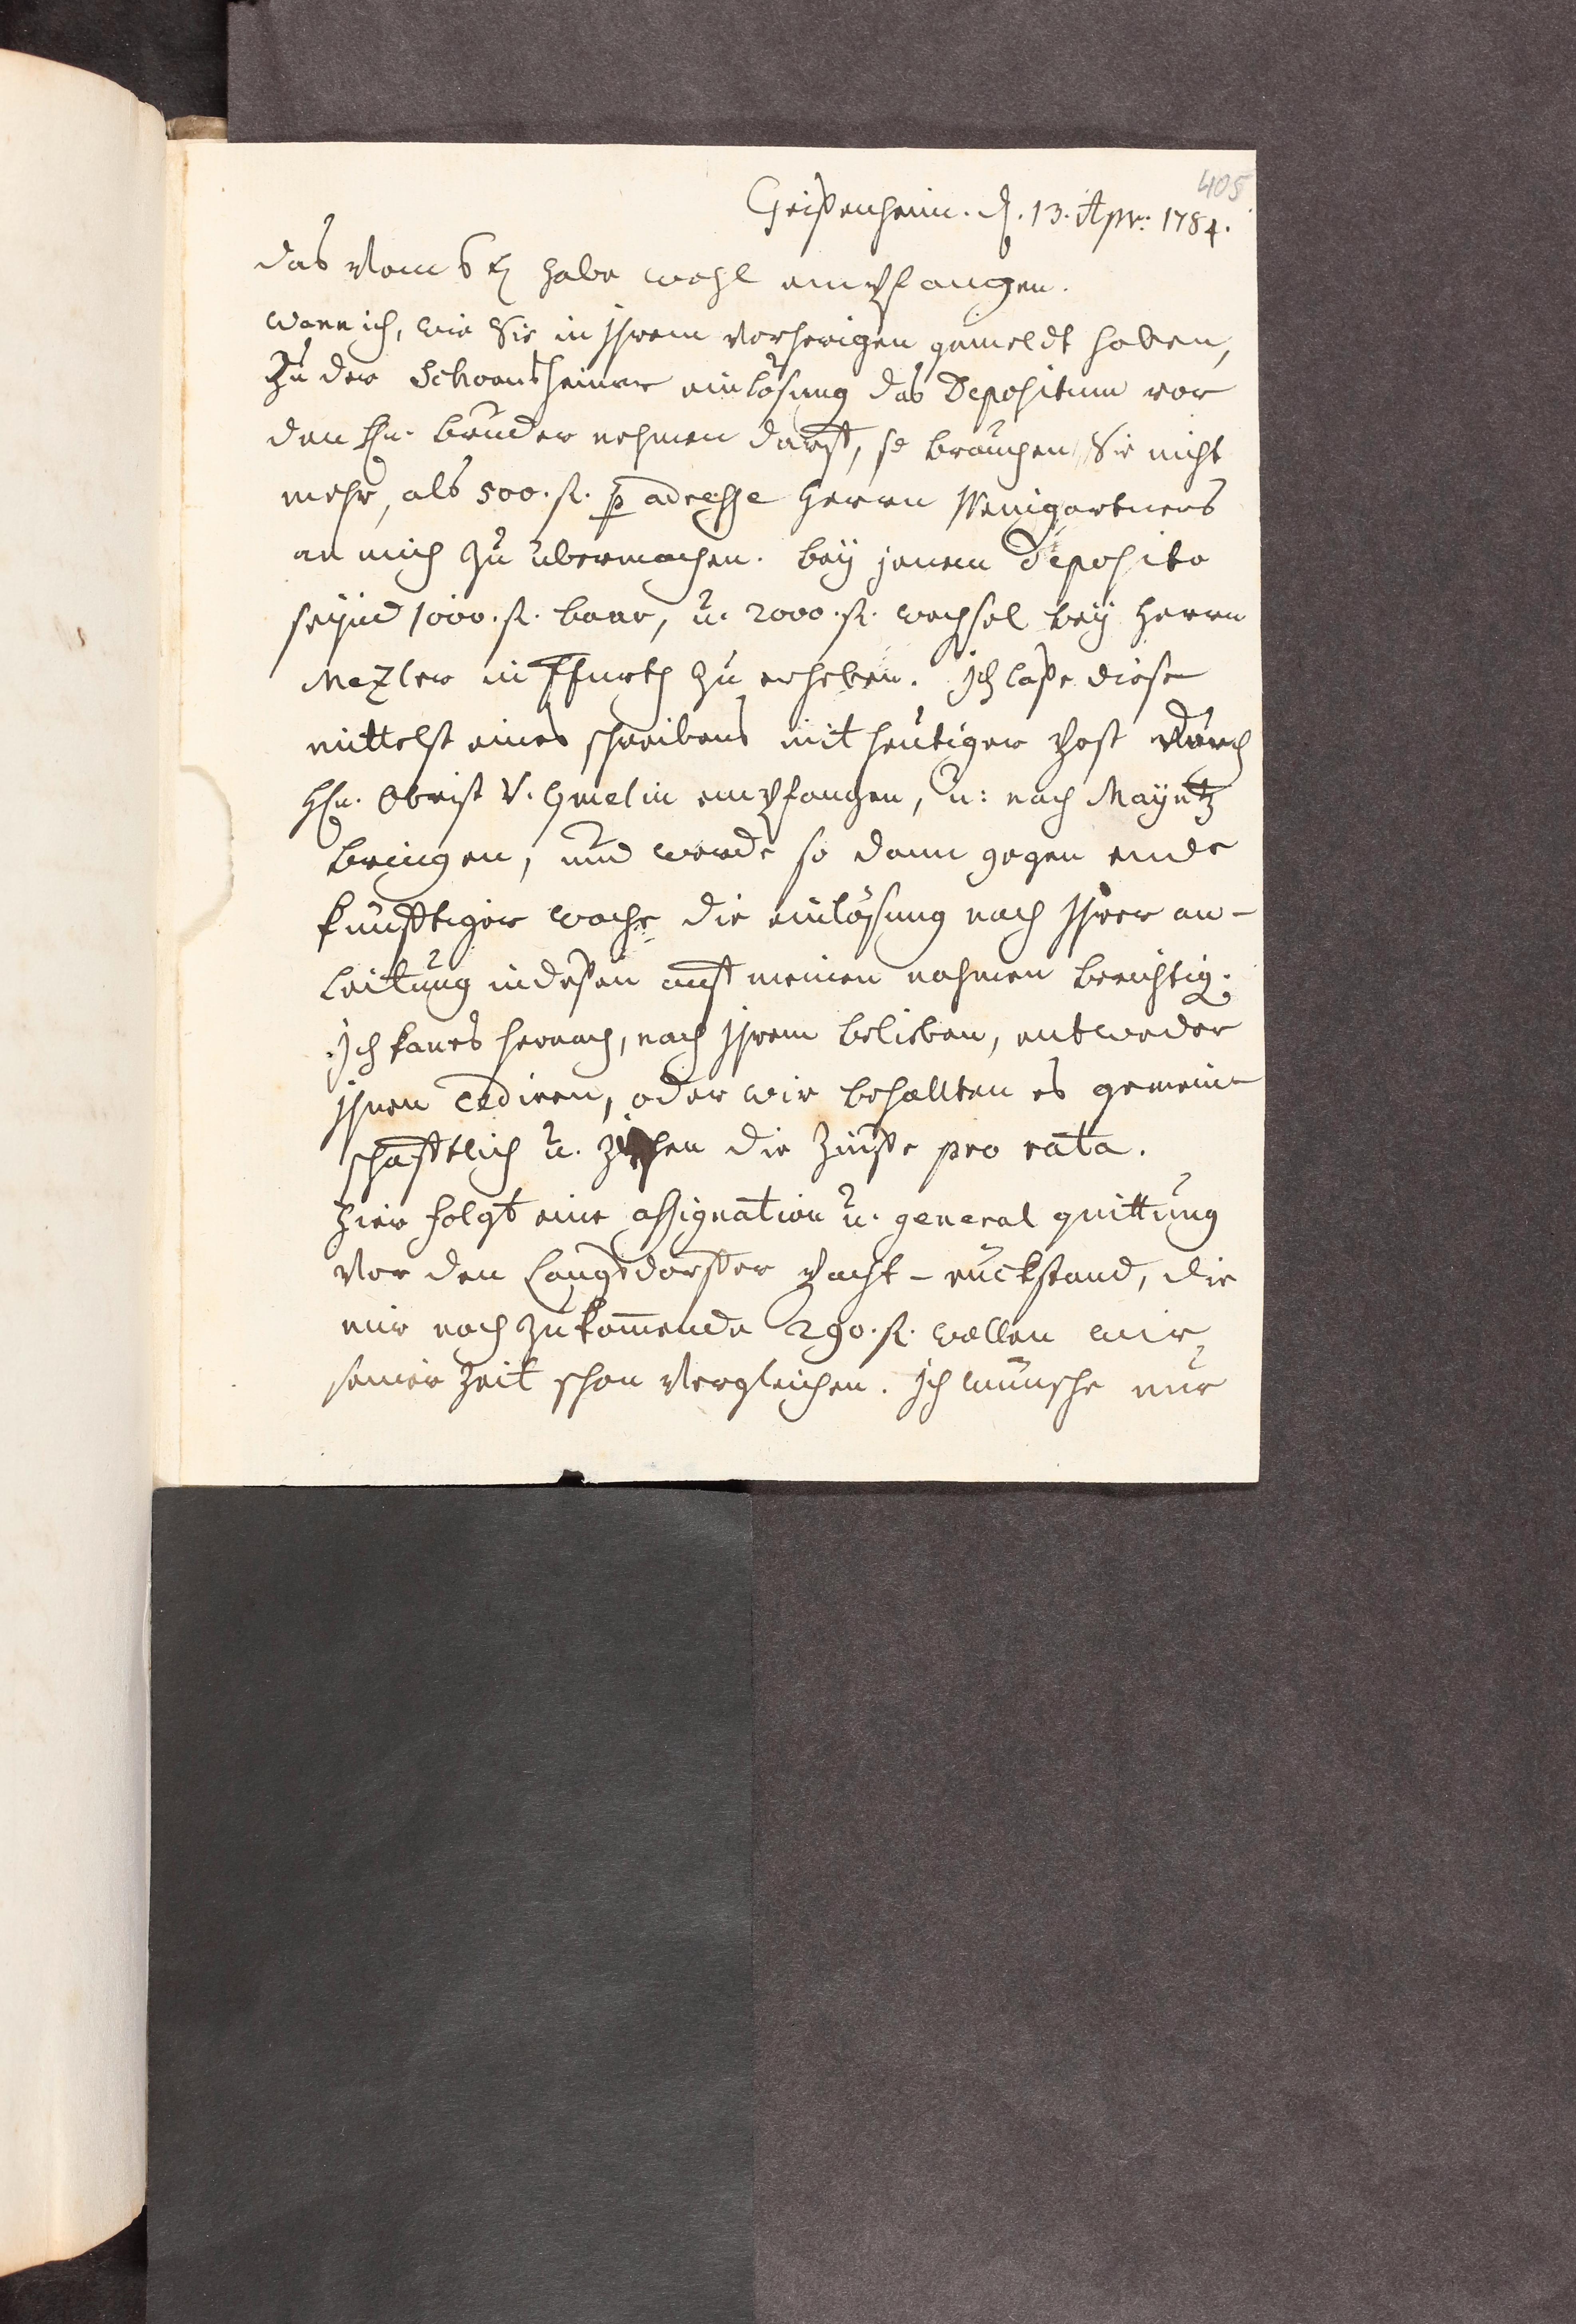 405
Geißenheim. d. 13. Apr: 1784.
das vom 6 t habe wohl empfangen.
wann ich, wie Sie in Ihrem vorherigen gemeldt haben,
zu der Schornsheimer einlösung das Depositum vor
den Hn. bruder nehmen darf, so brauchen Sie nicht
mehr, als 500. fl. p adresse Herrn Weingartners
an mich zu übermachen. bey jenem Deposito
seynd 1000. fl. baar, u. 2000. fl. wechsel bey Herrn
Mezler in Ffurth zu erheben. Ich laße diese
mittelst eines schreibens mit heutiger Post durch
Hn. Obrist v. Gmelin empfangen, u: nach Mayntz
bringen, und werde so dann gegen ende
künfftiger woche die einlösung nach Ihrer an-
leitung indeßen auf meinen nahmen berichtig.
Ich kan es hernach, nach Ihrem belieben, entweder
Ihnen cediren, oder wir behallten es gemein-
schafftlich u. ziehen die Zinße pro rata.
hier folgt eine assignation u. general quittung
vor den Langsdorffer Pacht-rückstand, die
mir noch zukomende 290. fl. wollen wir
seiner Zeit schon vergleichen. Ich wünsche nur